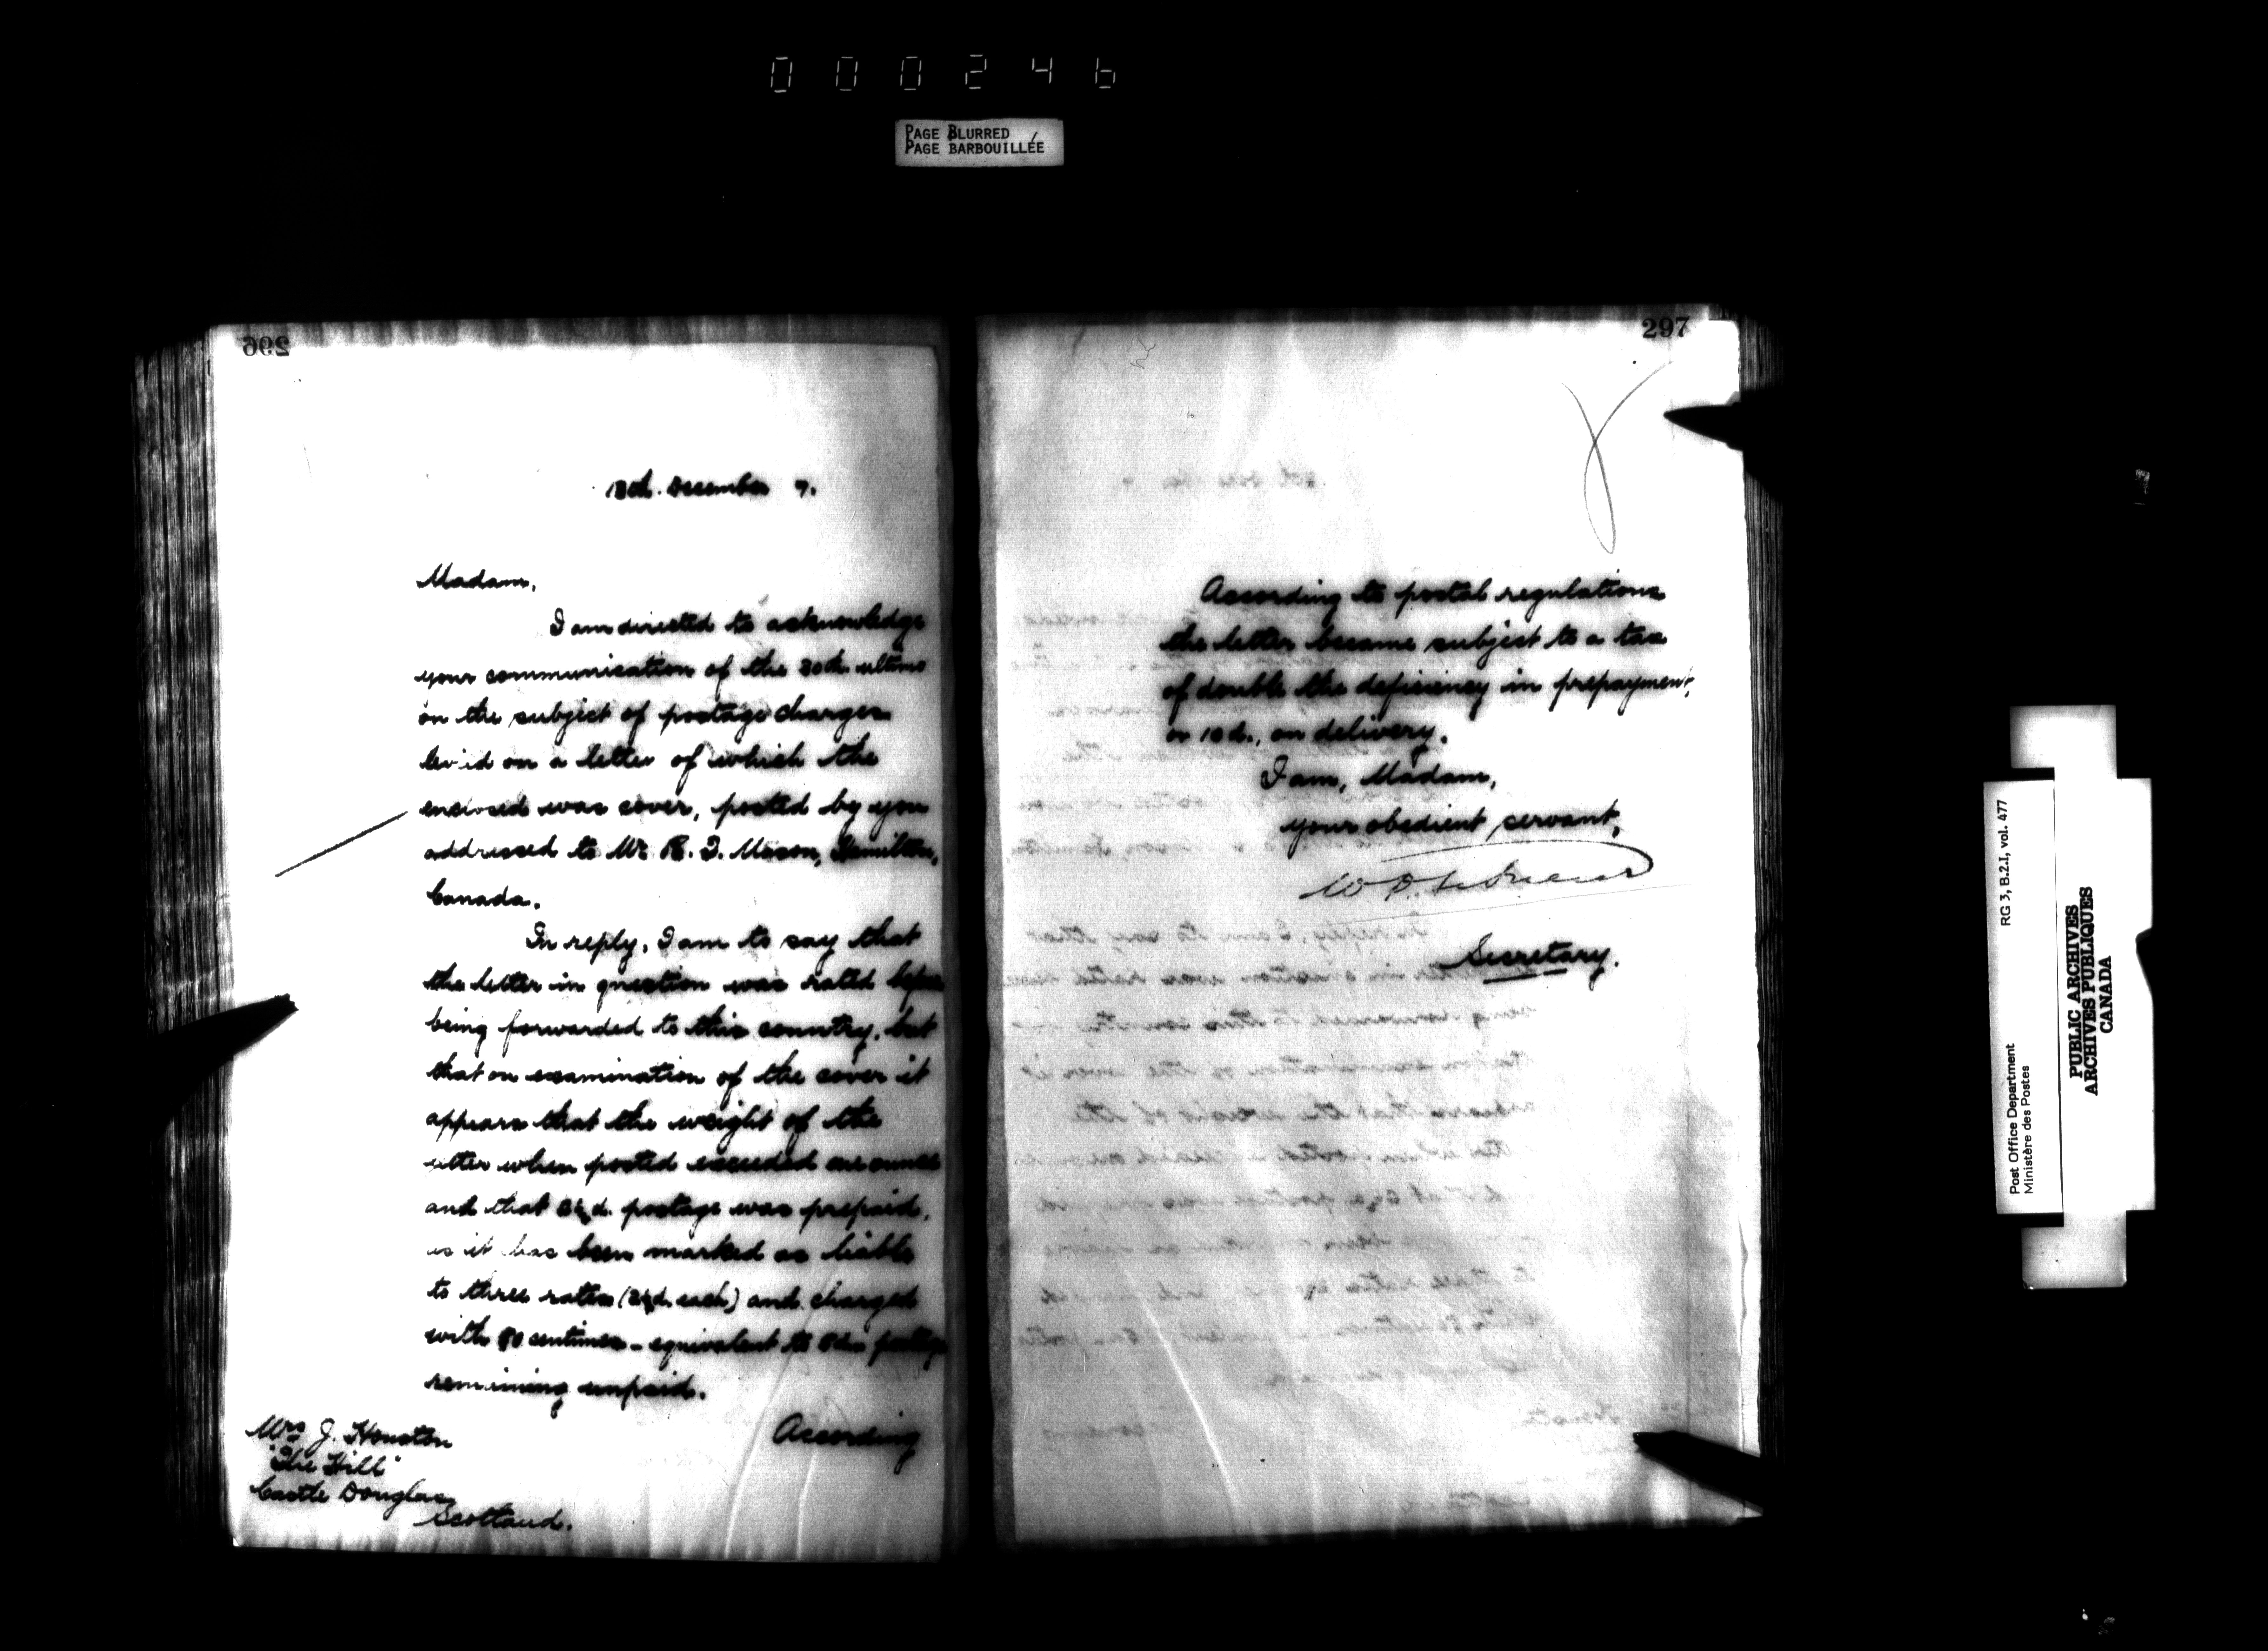 000246
PAGE BLURRED
PAGE BARBOUILLÉE
296
13th. December 7.
Madam,
I am directed to acknowledge
your communication of the 30th ultimo
on the subject of postage charges
levied on a letter of which the
enclosed was cover, posted by you
addressed to Mr. R. J. Mason, Hamilton,
Canada.
In reply, I am to say that
the letter in question was rated before
being forwarded to this country, but
that on examination of the cover it
appears that the weight of the
letter when posted exceeded one ounce
and that 2½d. postage was prepaid,
as it has been marked as liable
to three rates (2½d. each) and charged
with 50 centimes - equivalent to 5d. in postage
remaining unpaid.
According
Mrs J. Houston
"The Hill"
Castle Douglas
Scotland.
297
According to postal regulations
the letter became subject to a tax
of double the deficiency in prepayment,
or 10d., on delivery.
I am, Madam,
your obedient servant,
Secretary.
RG 3, B.2.I, vol. 477
Post Office Department
Ministère des Postes
PUBLIC ARCHIVES
ARCHIVES PUBLIQUES
CANADA